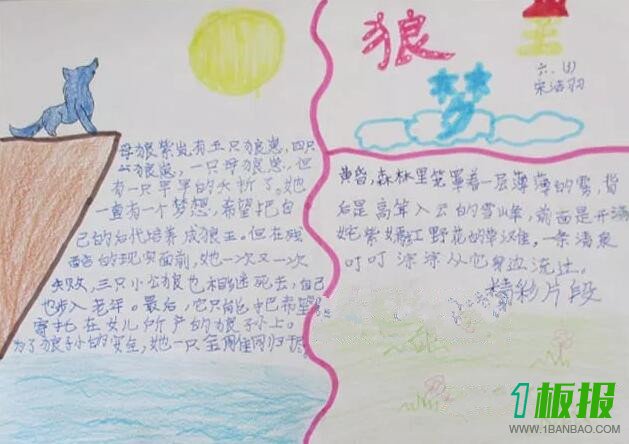 狼王
梦
六
宋洁羽
母狼紫岚有五只狼崽,四只
公狼崽,一只母狼崽,但
有一只早早的夭折了。她
一直有一个梦想,希望把自
己的后代培养成狼王。但在残
酷的现实面前,她一次又一次
失败,三只小公狼也相继死去,自己
也步入老年。最后,它只能把希望
寄托在女儿所产的狼子小上。
为了狼子小的安全,她一只金雕同归
黄昏,森林里笼罩着一层薄薄的雾,背
后是高耸入云的雪峰,前面是开满
姹紫嫣红野花的草滩。一条清泉
叮叮淙淙从它身边流过。
精彩片段
1板报
WWW.1BANBAO.COM